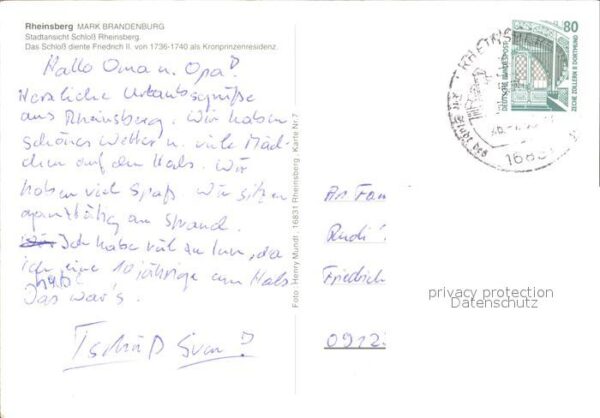 Rheinsberg MARK BRANDENBURG
Stadtansicht Schloß Rheinsberg.
Das Schloß diente Friedrich II. von 1736-1740 als Kronprinzenresidenz.
Hallo Oma u. Opa!
Herzliche Urlaubsgrüße
aus Rheinsberg. Wir haben
schönes Wetter u. viele Mäd-
chen auf dem Hals. Wir
haben viel Spaß. Wir sitzen
ganztätig am Strand.
Ich habe viel zu tun, da
ich eine 10 jährige am Hals
habe
Das war's.
Tschüß Sven!
Foto: Henry Mundt · 16831 Rheinsberg · Karte Nr. 7
80
DEUTSCHE BUNDESPOST
ZECHE ZOLLERN II DORTMUND
RHEINSBERG
16831
An Fam
Rudi
Friedrich
0912
privacy protection
Datenschutz